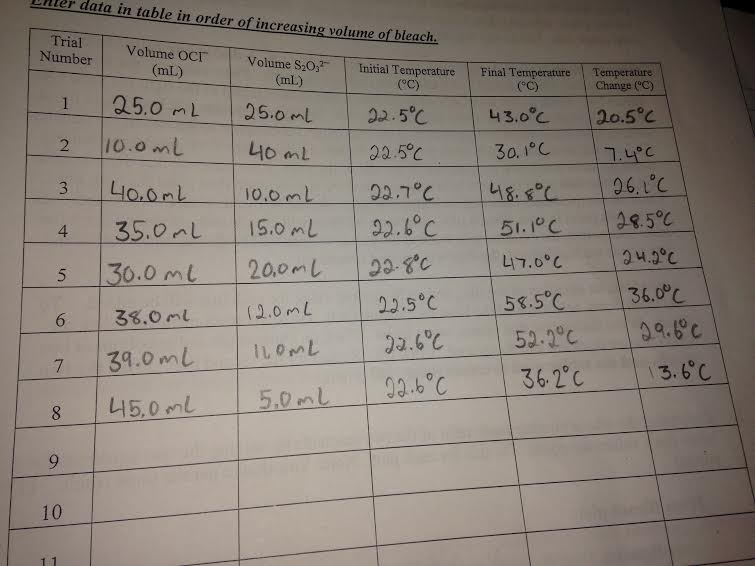 Enter data in table in order of increasing volume of bleach.
Trial Number | Volume OCl⁻ (mL) | Volume S₂O₃²⁻ (mL) | Initial Temperature (°C) | Final Temperature (°C) | Temperature Change (°C)
1 | 25.0 mL | 25.0 mL | 22.5°C | 43.0°C | 20.5°C
2 | 10.0 mL | 40 mL | 22.5°C | 30.1°C | 7.4°C
3 | 40.0 mL | 10.0 mL | 22.7°C | 48.8°C | 26.1°C
4 | 35.0 mL | 15.0 mL | 22.6°C | 51.1°C | 28.5°C
5 | 30.0 mL | 20.0 mL | 22.8°C | 47.0°C | 24.2°C
6 | 38.0 mL | 12.0 mL | 22.5°C | 58.5°C | 36.0°C
7 | 39.0 mL | 11.0 mL | 22.6°C | 52.2°C | 29.6°C
8 | 45.0 mL | 5.0 mL | 22.6°C | 36.2°C | 13.6°C
9
10
11